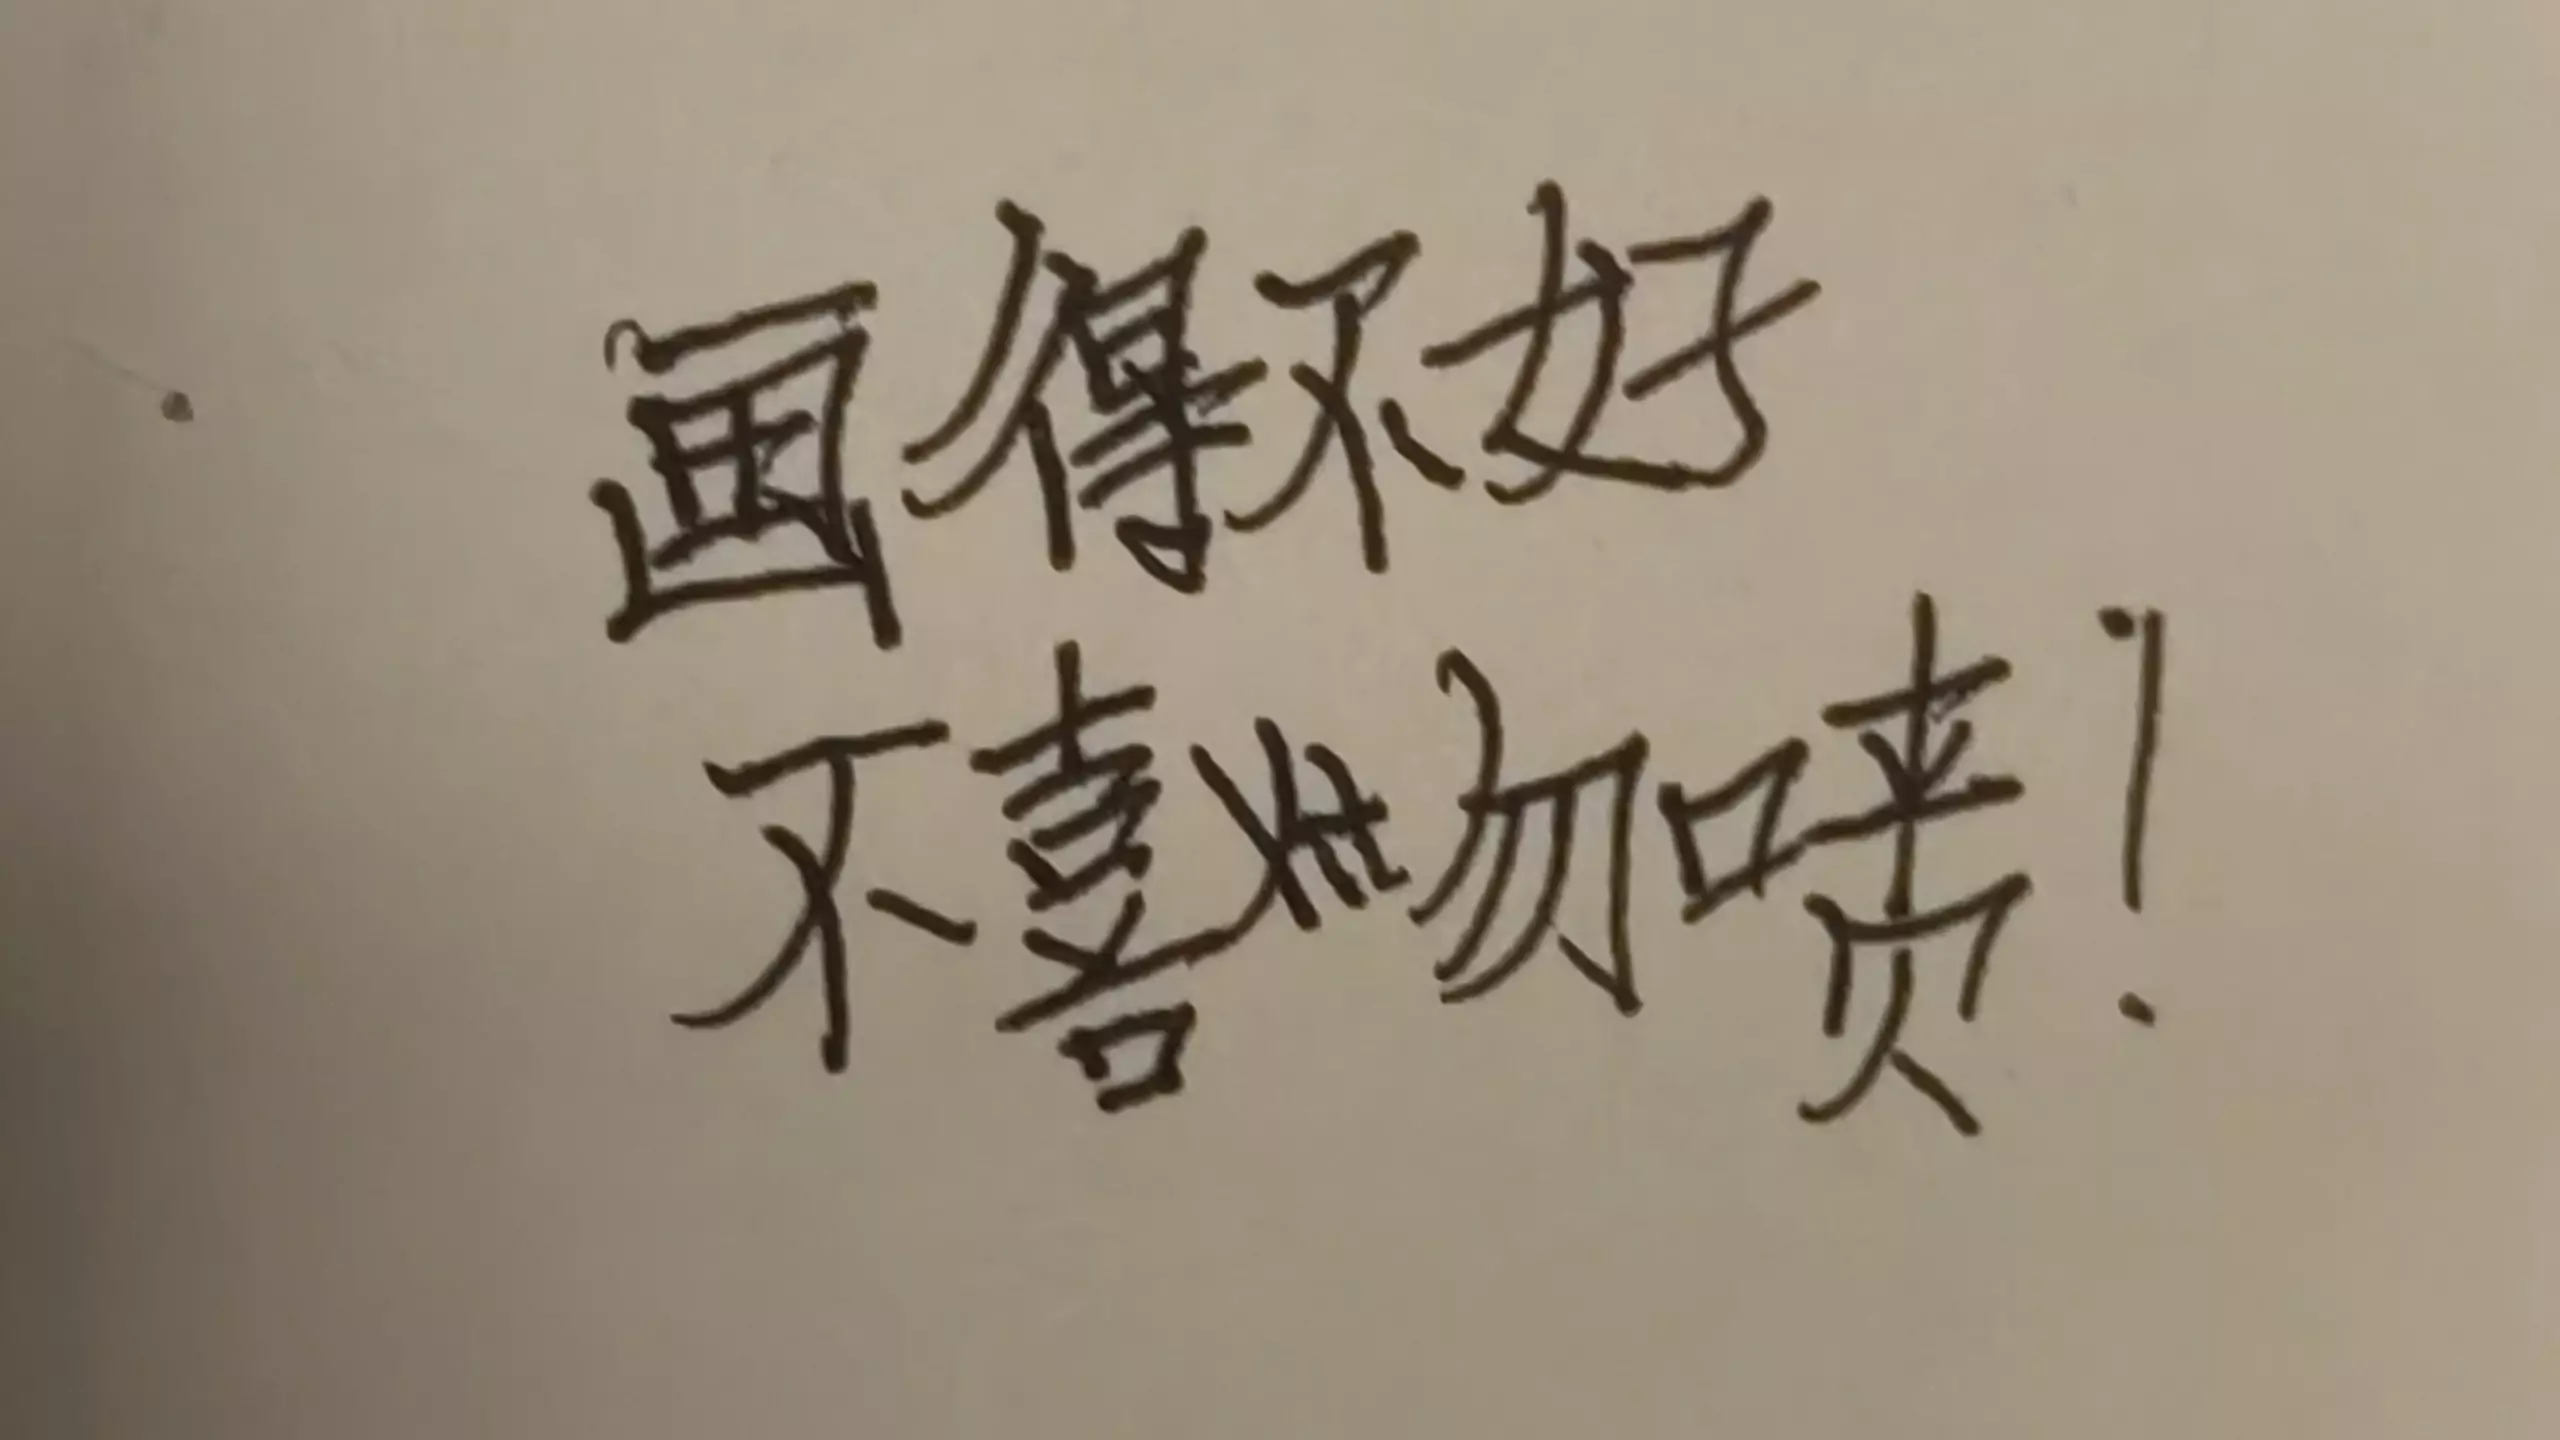 画得不好
不喜勿喷!